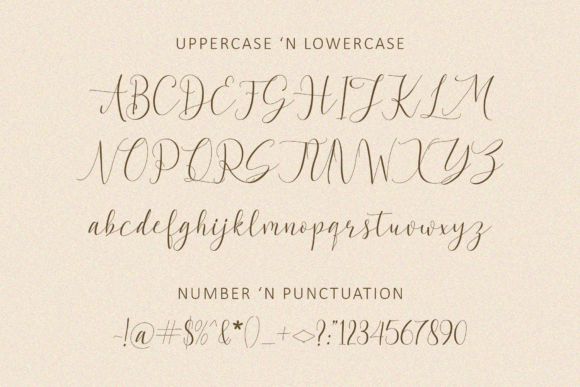 UPPERCASE ‘N LOWERCASE
ABCDEFGHIJKLM
NOPQRSTUVWXYZ
abcdefghijklmnopqrstuvowxyz
NUMBER ‘N PUNCTUATION
~!@#$%^&*()_+<>?:"1234567890